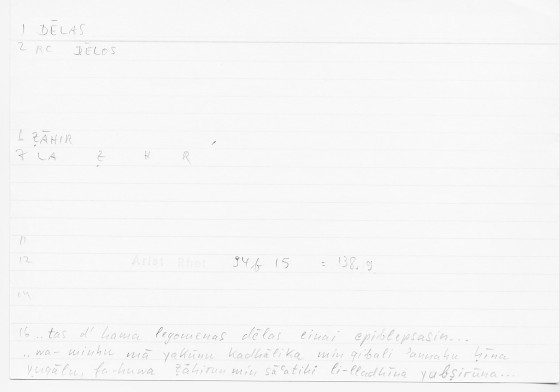 1 DĒLAS
2 RC DĒLOS
6 ẒĀHIR
7 LA Ẓ H R
11
12 94b 15 = 138.9
14
16 ..tas d' hama legomenas dēlas einai epiblepsasin...
..wa-minhu mā yakūnu kadhālika min qibali annahu ḥīna
yuqālu, fa-huwa ẓāhirun min sāʿatihi li-lladhīna yubṣirūna...